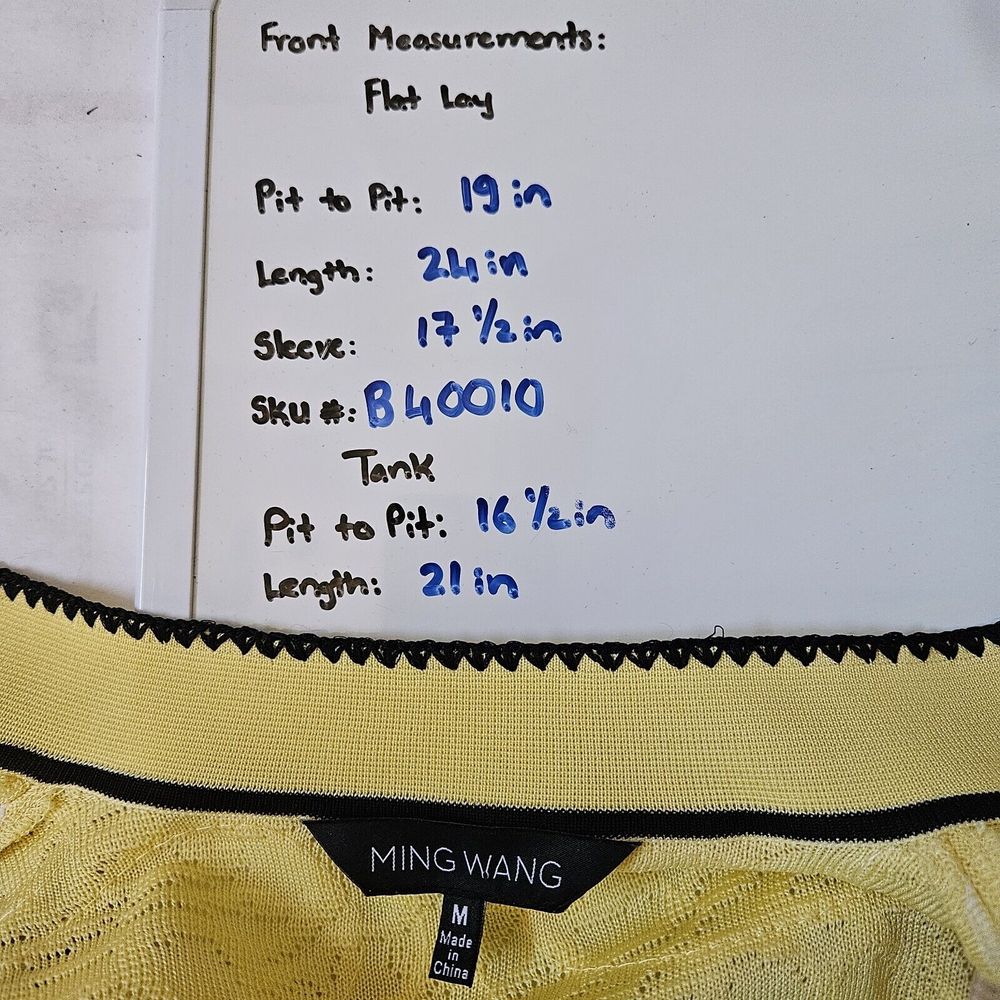 Front Measurements:
Flat Lay
Pit to Pit: 19 in
Length: 24 in
Sleeve: 17 1/2 in
SKU #: B40010
Tank
Pit to Pit: 16 1/2 in
Length: 21 in
MING WANG
M
Made
in
China